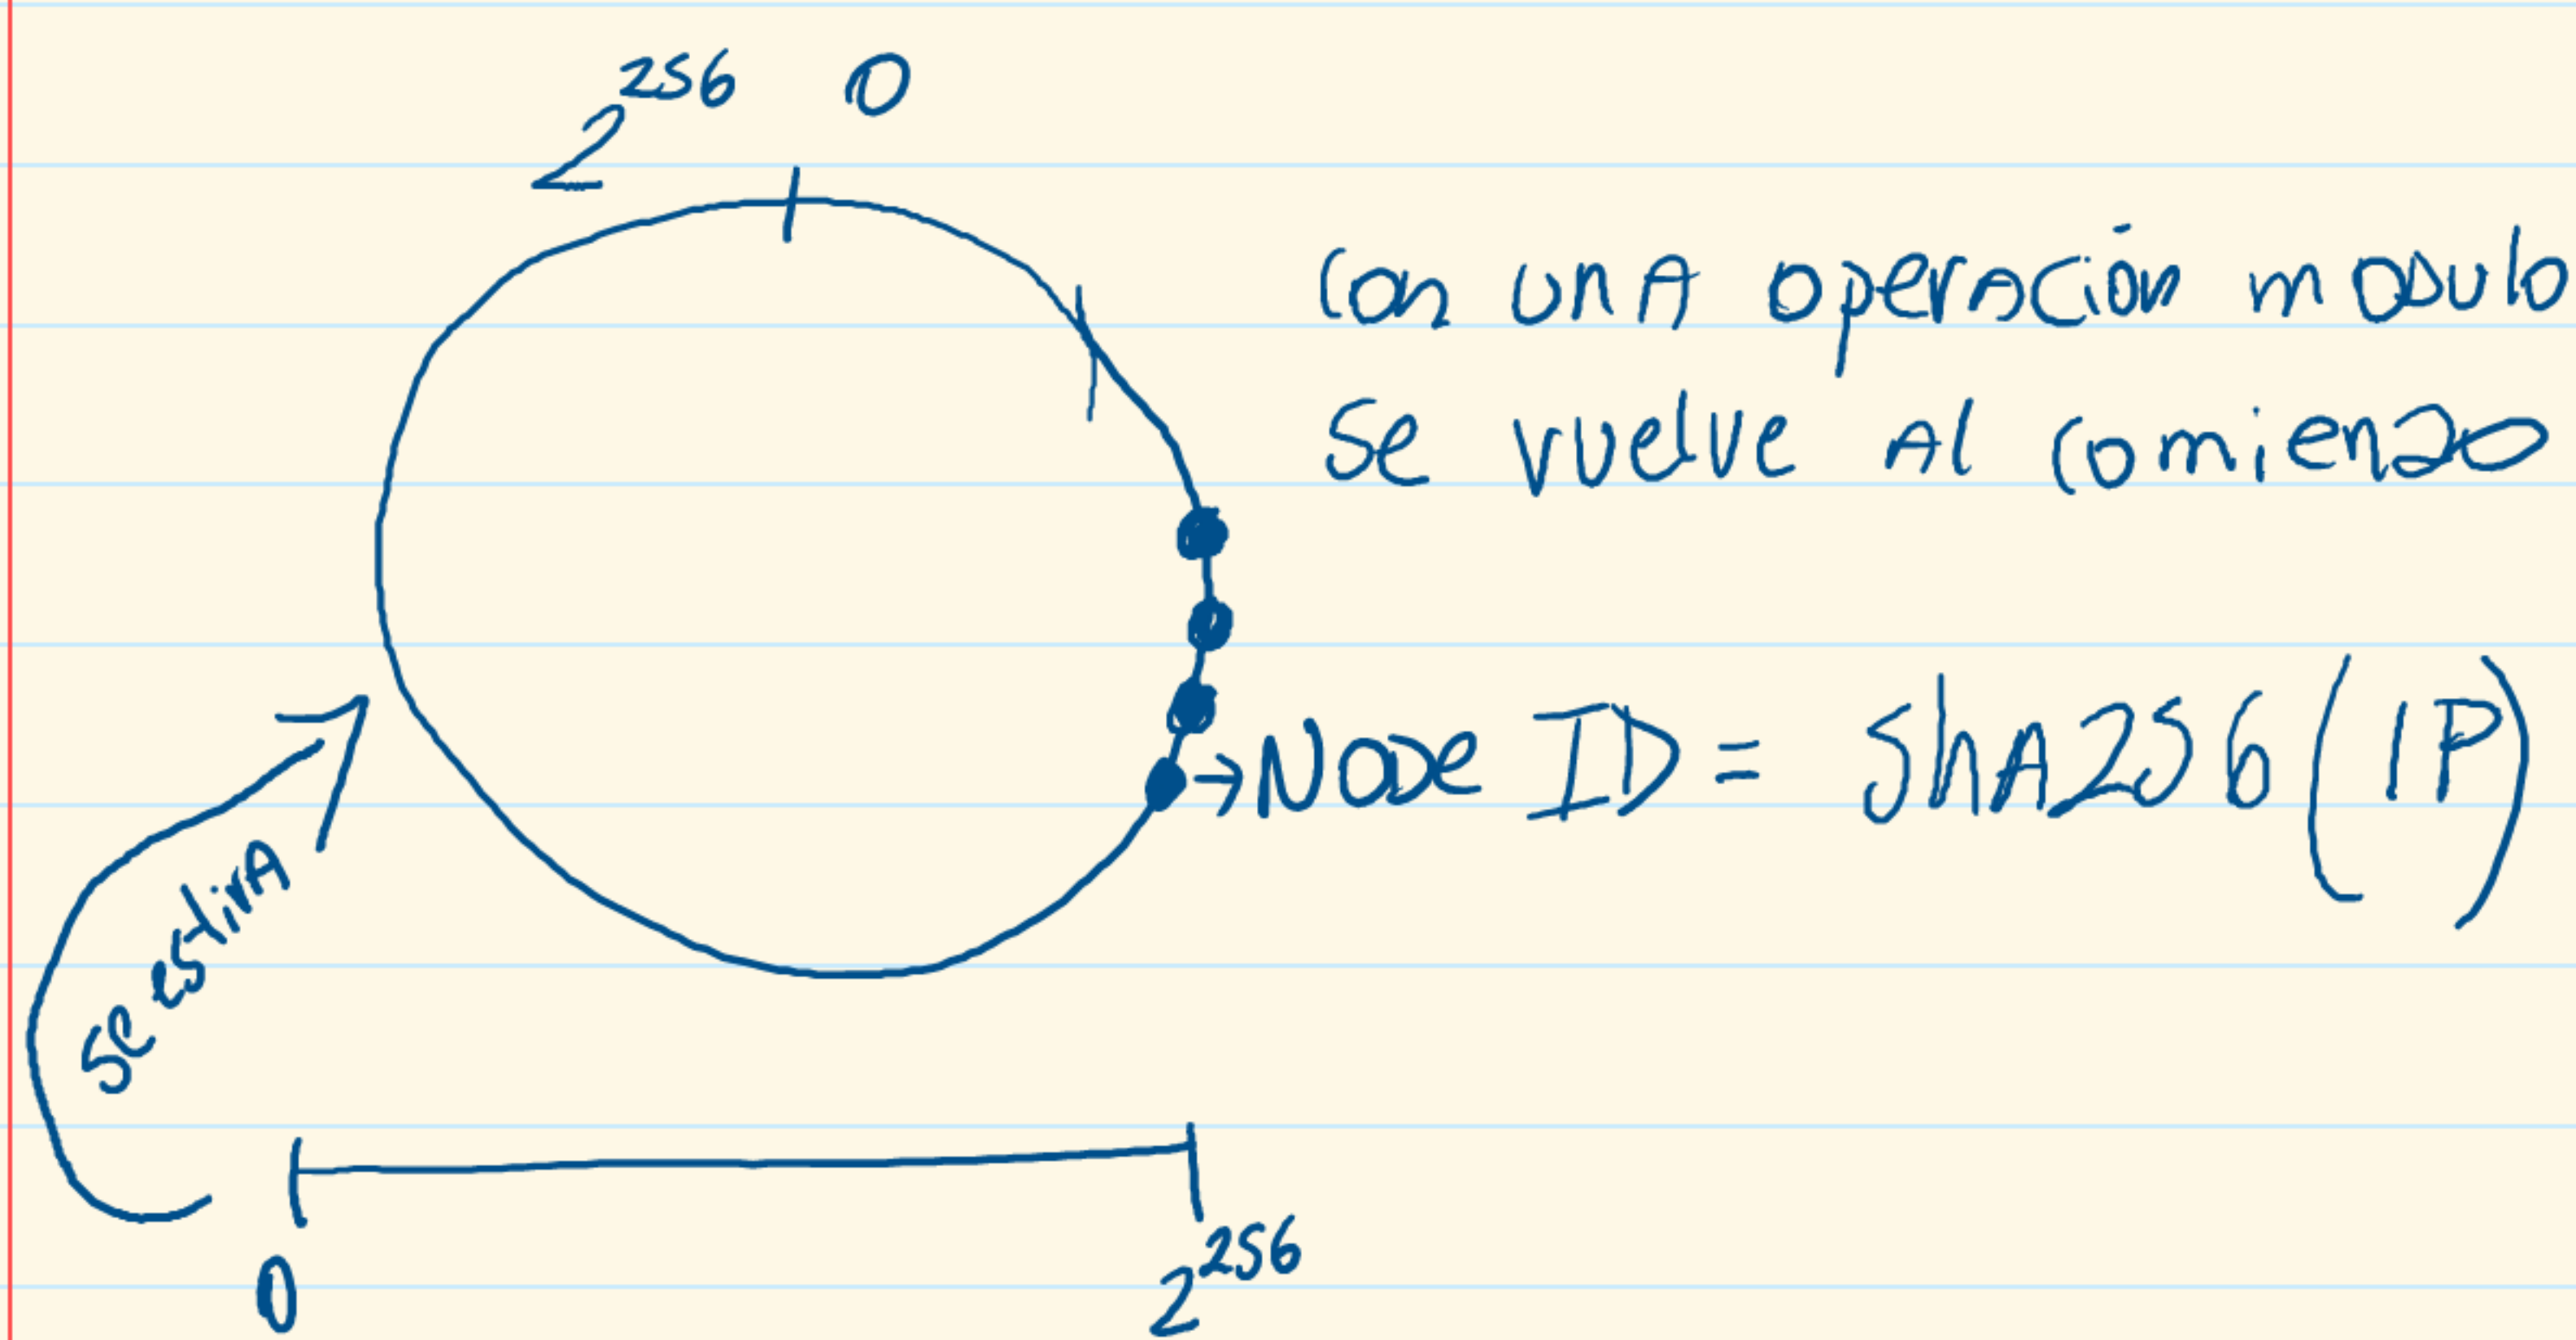 2^256 0
con una operación modulo
se vuelve al comienzo
→ Node ID = ShA256(IP)
se estira
0
2^256